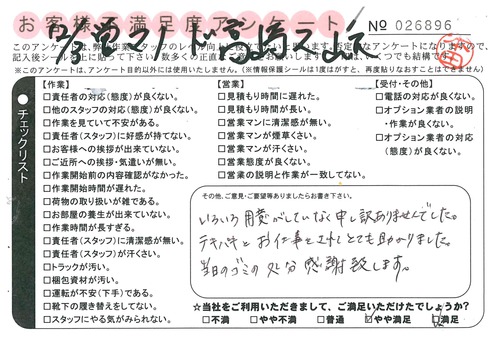 お客様満足度アンケート
№ 026896
※このアンケートは、アンケート目的以外には使用いたしません。(※情報保護シールは1度はがすと、再度貼りなおすことはできません)
チェックリスト
【作業】
□責任者の対応(態度)が良くない。
□他のスタッフの対応(態度)が良くない。
□作業を見ていて不安がある。
□責任者(スタッフ)に好感が持てない。
□お客様への挨拶が出来ていない。
□ご近所への挨拶・気遣いが無い。
□作業開始前の内容確認がなかった。
□作業開始時間が遅れた。
□荷物の取り扱いが雑である。
□お部屋の養生が出来ていない。
□作業時間が長すぎる。
□責任者(スタッフ)に清潔感が無い。
□責任者(スタッフ)が汗くさい。
□トラックが汚い。
□梱包資材が汚い。
□運転が不安(下手)である。
□靴下の履き替えをしてない。
□スタッフにやる気がみられない。
【営業】
□見積もり時間に遅れた。
□見積もり時間が長い。
□営業マンに清潔感が無い。
□営業マンが煙草くさい。
□営業マンが汗くさい。
□営業態度が良くない。
□営業の説明と作業が一致してない。
【受付・その他】
□電話の対応が良くない。
□オプション業者の説明
・作業が良くない。
□オプション業者の対応
(態度)が良くない。
その他、ご意見・ご要望等ありましたらお書き下さい。
いろいろ用意がしていなく申し訳ありませんでした。
テキパキとお仕事をされとても助かりました。
当日のゴミの処分感謝致します。
☆当社をご利用いただきまして、ご満足いただけたでしょうか?
□不満 □やや不満 □普通 ☑やや満足 ☑満足